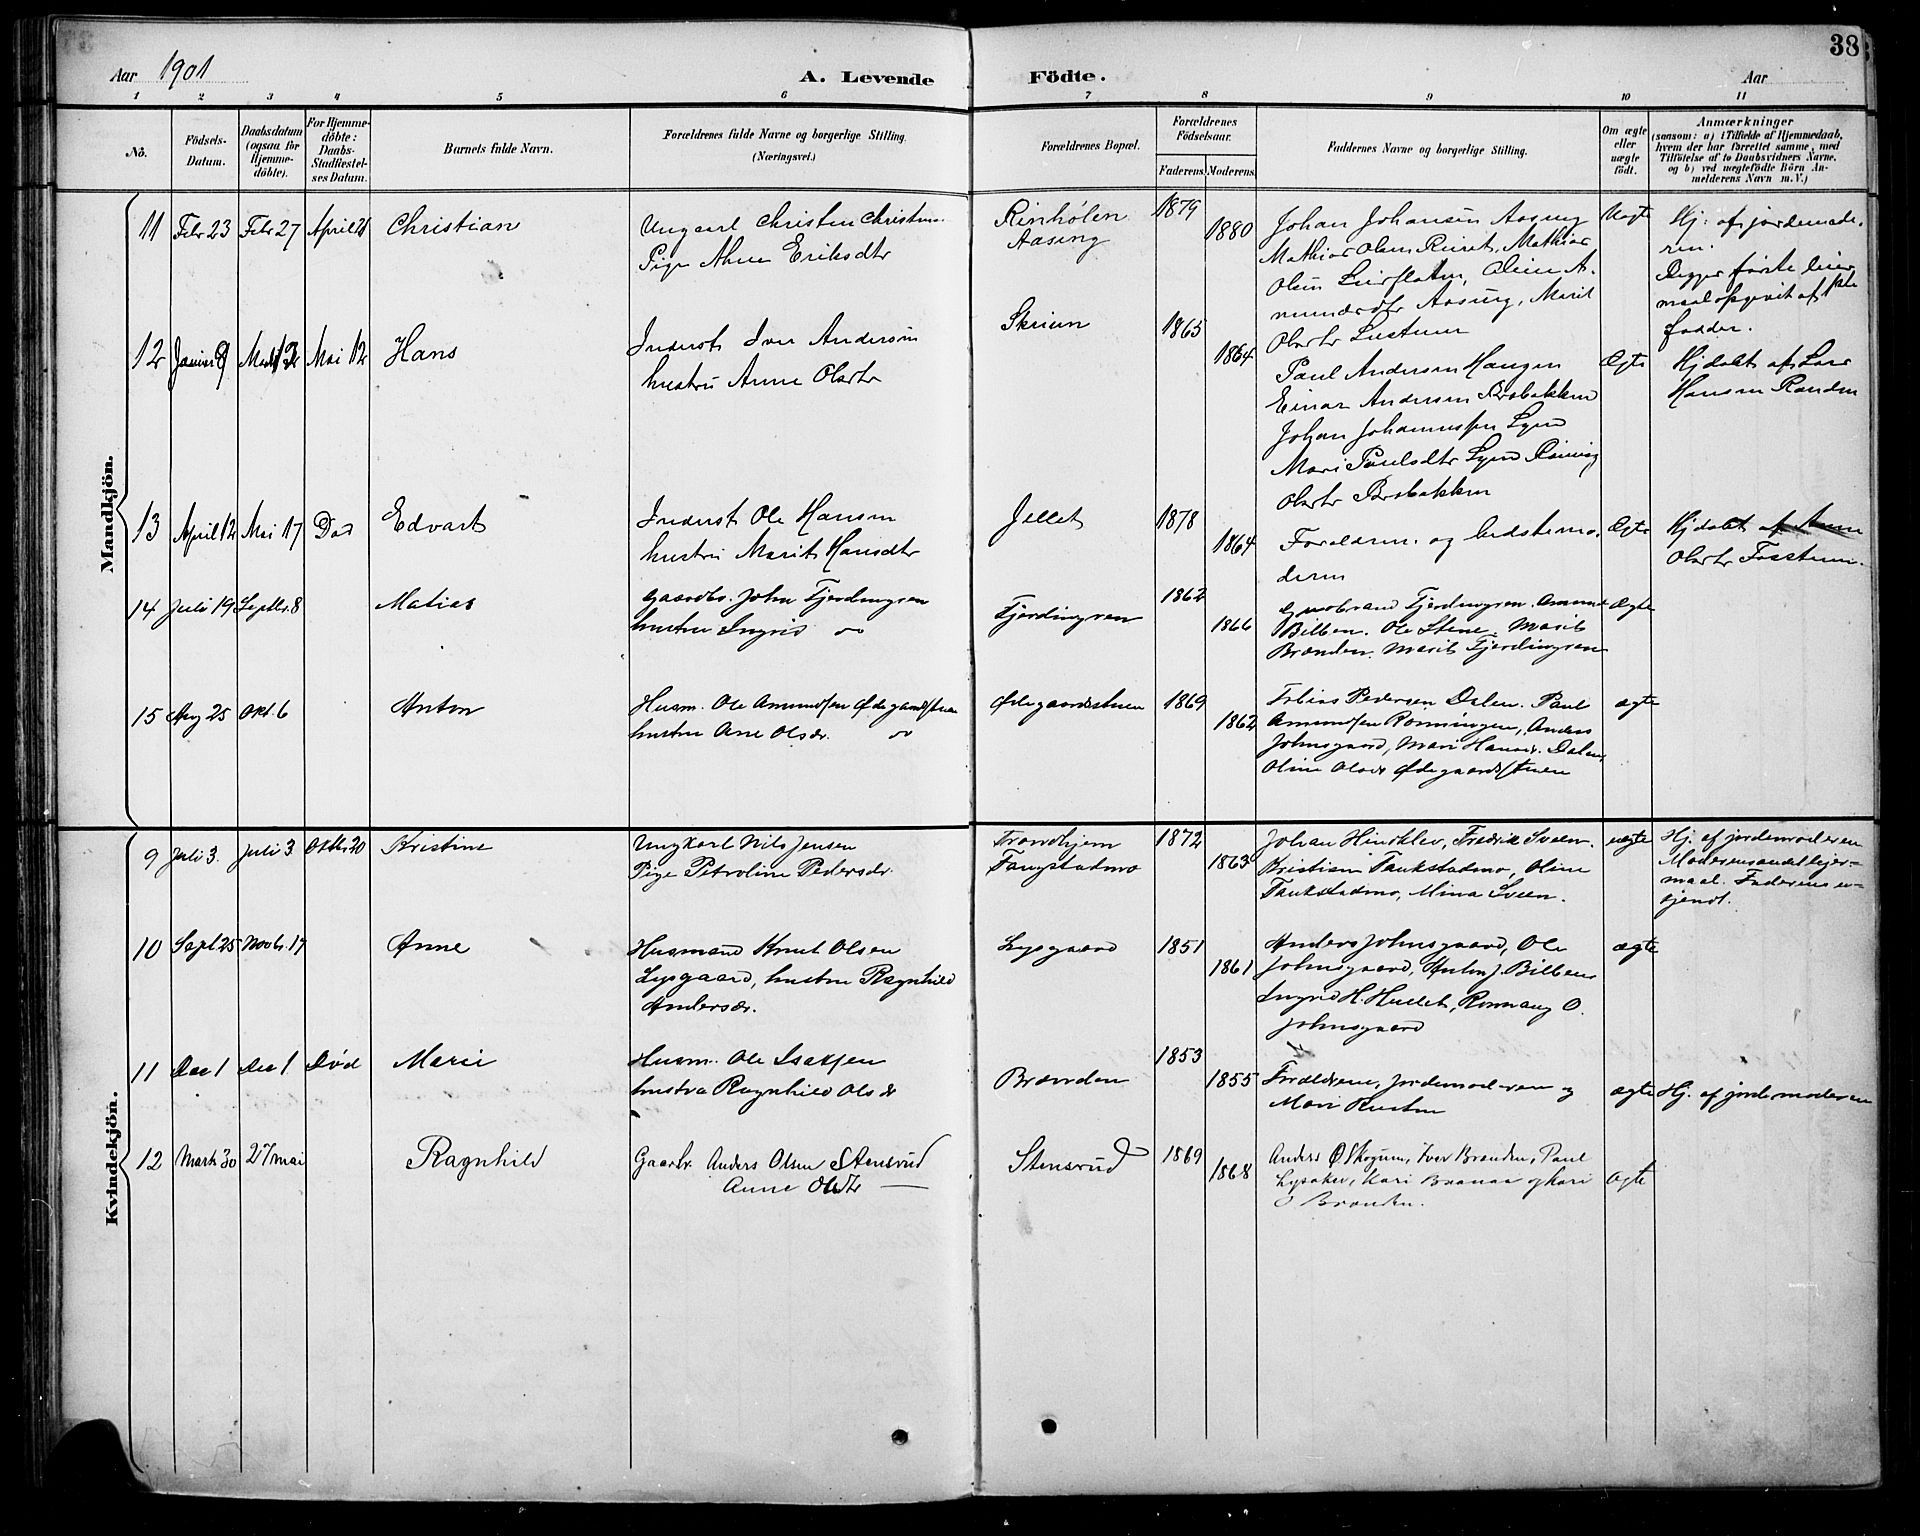 38
Aar 1901
A. Levende Födte.
Aar
1 2 3 4 5 6 7 8 9 10 11
No.
Födsels-Datum.
Daabsdatum (ogsaa for Hjemmedöbte).
For Hjemmedöbte: Daabs-Stadfæstelses Datum.
Barnets fulde Navn.
Forældrenes fulde Navne og borgerlige Stilling. (Næringsvei.)
Forældrenes Bopæl.
Forældrenes Födselsaar.
Faderens. Moderens.
Faddernes Navne og borgerlige Stilling.
Om ægte eller uægte födt.
Anmærkninger
(saasom: a) i Tilfælde af Hjemmedaab, hvem der har forrettet samme, med Tilföielse af to Daabsvidners Navne, og b) ved uægtefödte Börn Anmelderens Navn m. V.)
Mandkjön.
11 Febr 23 Febr 27 April 21 Christian
Ungkarl Christen Christens.
Pige Anne Eriksdtr
Rinhølen
Aasing
1879
1880
Johan Johansen Aaseng
Mathias Olsen Ruret, Mathias
Olsen Leirflaten,
Aaseng, Marit
Olsdtr
Uægte
Hj: af jordemode-
ren.
Begges første leier
maal opgivet af 1ste
fadder.
12 Januar 9 Mai 12 Hans
Inderst Iver Andersen
hustru Anne Olsdtr
Skriun
1865
1864
Paul Andersen Haugen
Einar Andersen Brobakken
Johan Johannessen
Mari Paulsdtr
Olsdtr Brobakken
Ægte
Hj døbt af Lars
Hansen Randen
13 April 12 Mai 17 Død Edvart
Inderst Ole Hansen
hustru Marit Hansdtr
Jellet
1878
1864
Forældrene og bedstemo-
deren
Ægte
Hj døbt af Anne
Olsdtr Fosstuen.
14 Juli 19 Septbr. 8 Matias
Gaardbr. John Fjerdingren
hustru Ingrid
Fjerdingren
1862
1866
Gudbrand Fjerdingren. Amund
Bilben. Ole Stene. Marit
Brænden. Marit Fjerdingren
Ægte
15 Aug 25 Okt. 6 Anton
Husm. Ole Amundsen Ødegaardstuen
hustru Ane Olsdr.
Ødegaardsstuen
1869
1862
Tobias Pedersen Dalen. Paul
Amundsen Rønningen, Anders
Johnsgaard, Mari Hansdr. Dalen,
Oline Olsdr Ødegaardsstuen
ægte
Kvindekjön.
9 Juli 3. Juli 3 Oktbr. 20 Kristine
Ungkarl Nils Jensen
Pige Petroline Pedersdr.
Trondhjem
Tangstadmo
1872
1863
Johan Hindklev, Fredrik Sveen.
Kristian Taukstadmo, Oline
Taukstadmo, Mina Sveen.
uægte
Hj. af jordemoderen
Moderens andet lejer-
maal. Faderens u-
kjendt.
10 Sept 25 Novbr. 17 Anne
Husmand Knut Olsen
Lysgaard, hustru Ragnhild
Andersdr.
Lysgaard
1851
1861
Anders Johnsgaard, Ole
Johnsgaard, Anton J. Bilben
Ingrid H. Hullet, Rønnaug O.
Johnsgaard
ægte
11 Dec 1 Dec 1 Død Marie
Husm. Ole Isaksen
hustru Ragnhild Olsdr
Brænden
1853
1855
Forældrene, jordemoderen og
Mari Rusten
ægte
Hj. af jordemoderen
12 Marts 30 27 mai Ragnhild
Gaardbr. Anders Olsen Stensrud
Anne Olsdtr —
Stensrud
1869
1868
Anders O Skogum, Iver Brænden, Paul
Lysaker, Kari og Kari
O Brænden.
ægte